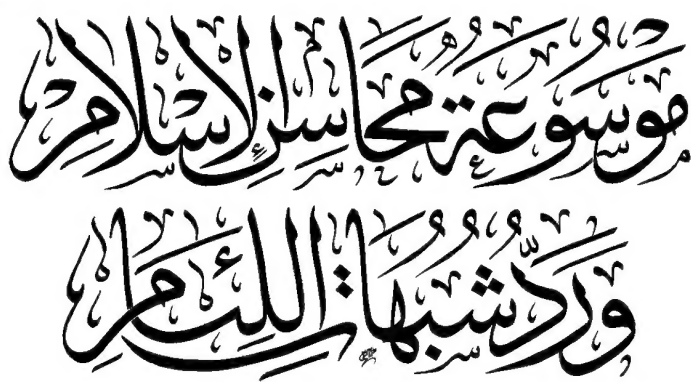 مَوْسُوعَةُ مَحَاسِنِ الْإِسْلَامِ
وَرَدِّ شُبُهَاتِ اللِّئَامِ